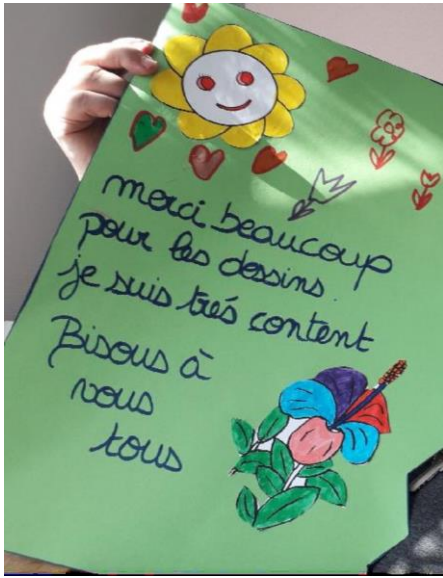 merci beaucoup
pour les dessins.
je suis trés content
Bisous à
vous
tous